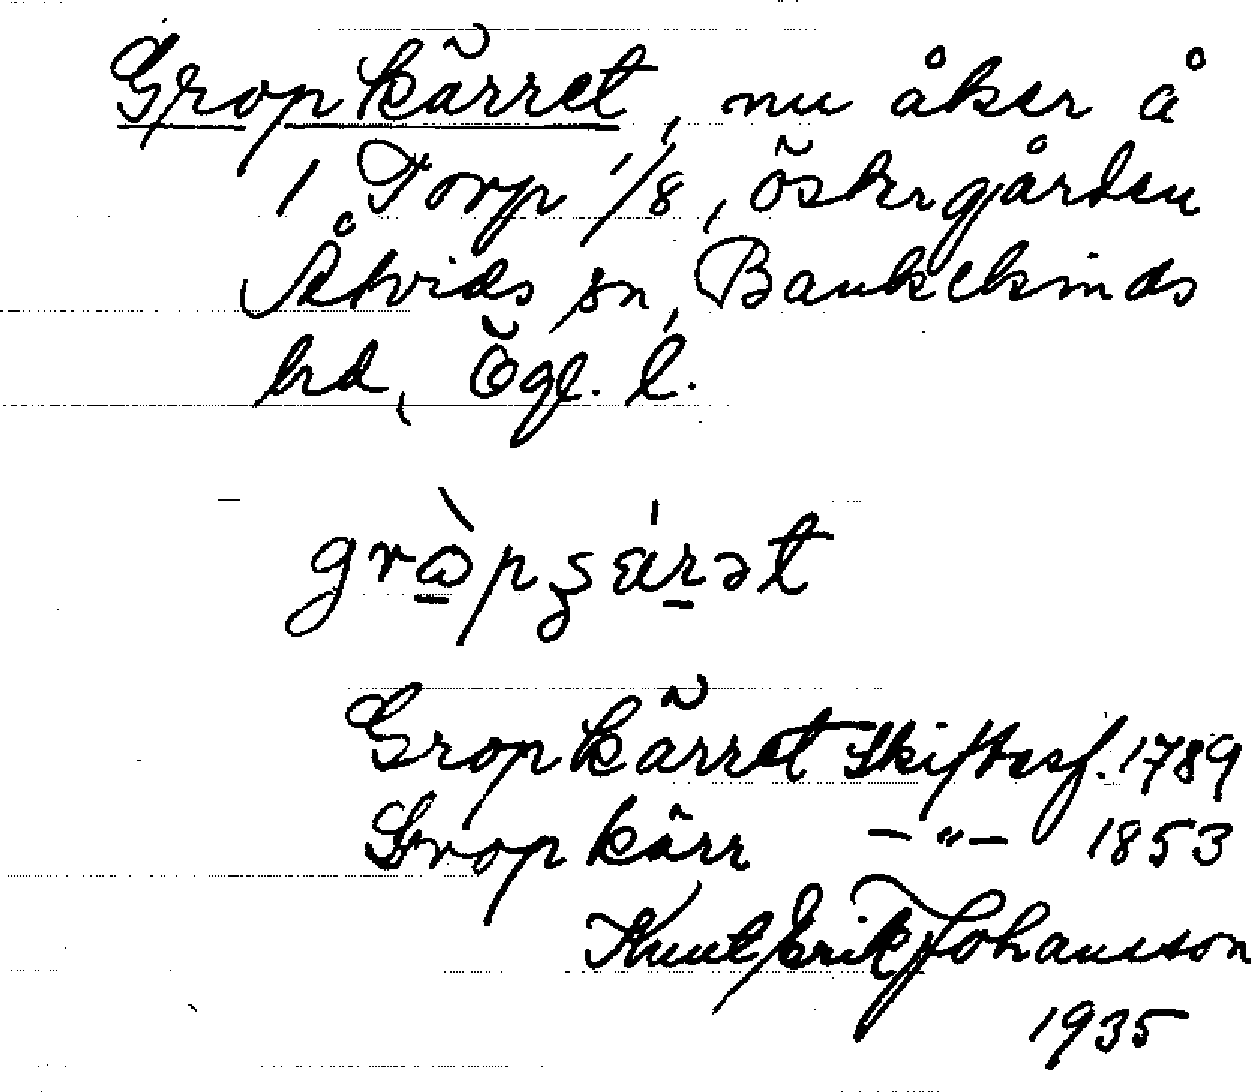 Gropkärret, nu åker å
1 Torp 1/8, östergården
Åtvids sn, Bankekinds
hd, Ögl. l.
Gropkärret Skiftesf. 1789
Gropkärr —"— 1853
Knut Erik Johansson
1935